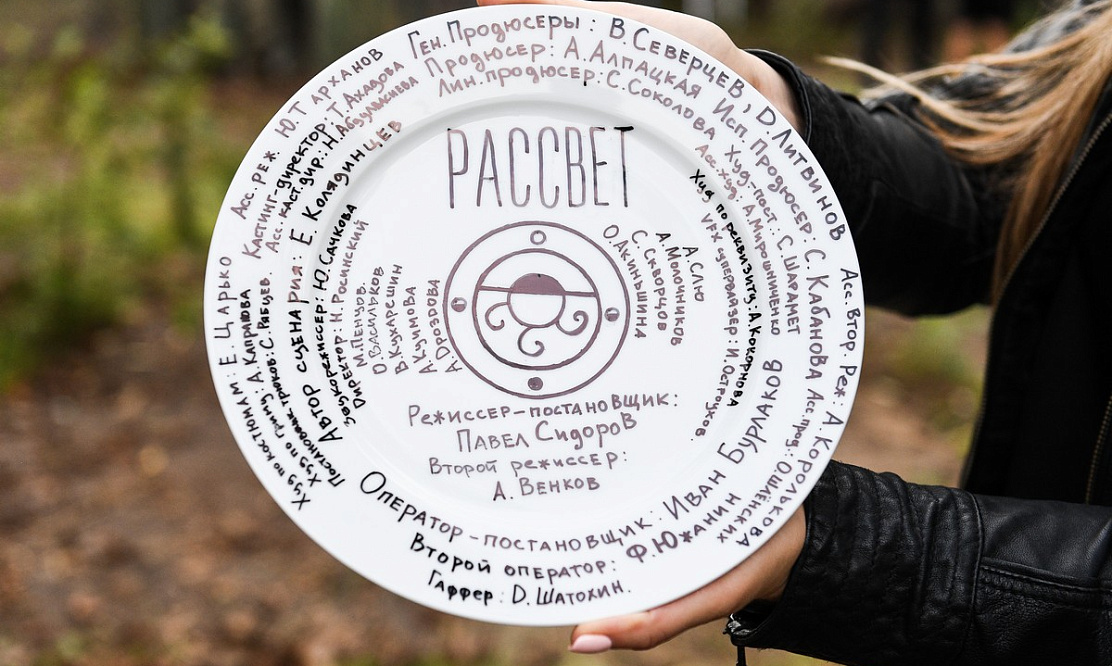 РАССВЕТ
Ген. Продюсеры: В. Северцев, Д. Литвинов
Продюсер: А. Алпацкая Исп. Продюсер: С. Кабанова Асс. прод: О. Шленских
Лин. продюсер: С. Соколова Худ-пост. С. Шарамет
Асс. худ: А. Мирошниченко
Худ по реквизиту: А. Кокорнова
VFX супервайзер: И. Остроухов.
Асс. Втор. Реж: А. Королькова
Асс. реж Ю. Тарханов
Кастинг-директор: Т. Ахадова
Асс. каст. дир: Н. Абдулгасиева
Автор сценария: Е. Колядинцев
Звукорежиссер: Ю. Сачкова
Директор: Н. Росинский
М. Пенунов.
О. Васильков
В. Кухарешин
А. Кузимова
А. Дроздова
А. Слю
А. Молочников
С. Скворцов
О. Акиньшина
Режиссер-постановщик:
Павел Сидоров
Второй режиссер:
А. Венков
Худ по костюмам: Е. Царько
Худ по гриму: А. Капралова
Постановщик трюков: С. Рабцев
Оператор-постановщик: Иван Бурлаков
Второй оператор: Ф. Южанин
Гаффер: D. Шатохин.